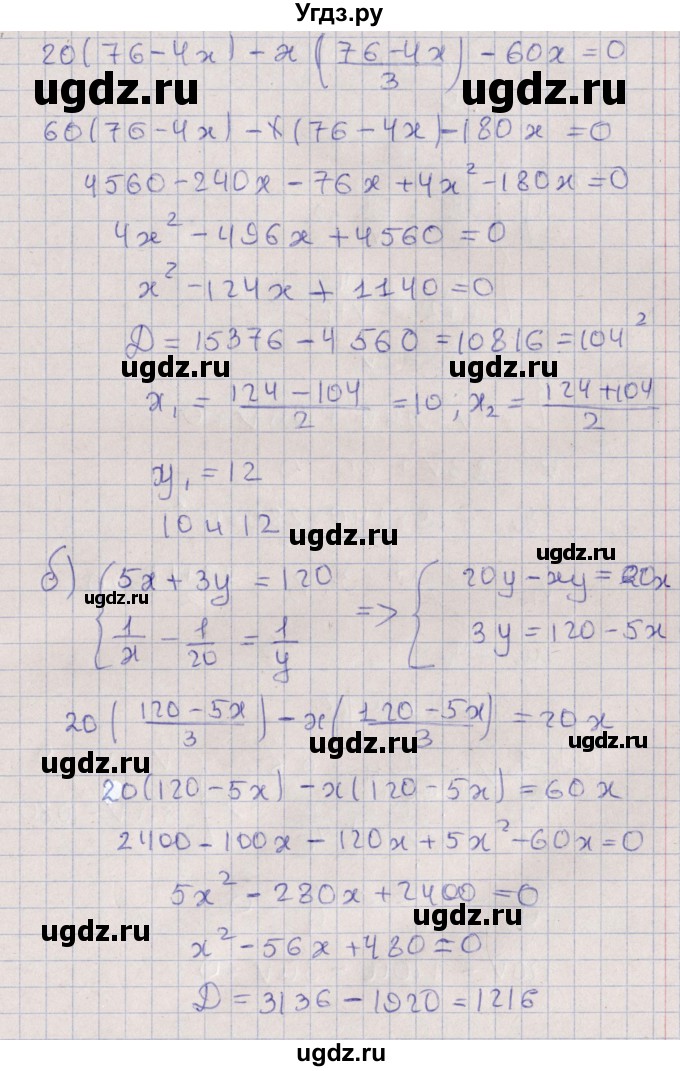 Угдз.ру
20(76-4x) - x(76-4x/3) - 60x = 0
ugdz.ru ugdz.ru
60(76-4x) - x(76-4x) - 180x = 0
4560 - 240x - 76x + 4x² - 180x = 0
4x² - 496x + 4560 = 0
x² - 124x + 1140 = 0
D = 15376 - 4560 = 10816 = 104²
ugdz.ru ugdz.ru
x₁ = 124-104/2 = 10; x₂ = 124+104/2
y₁ = 12
10 и 12
ugdz.ru
ugdz.ru
б) { 5x + 3y = 120 => { 20y - xy = 20x
ugdz.ru
1/x - 1/20 = 1/y 3y = 120 - 5x
20(120-5x/3) - x(120-5x/3) = 20x
ugdz.ru ugdz.ru ugdz.ru
20(120-5x) - x(120-5x) = 60x
2400 - 100x - 120x + 5x² - 60x = 0
5x² - 280x + 2400 = 0
ugdz.ru
ugdz.ru
x² - 56x + 480 = 0
D = 3136 - 1920 = 1216
ugdz.ru